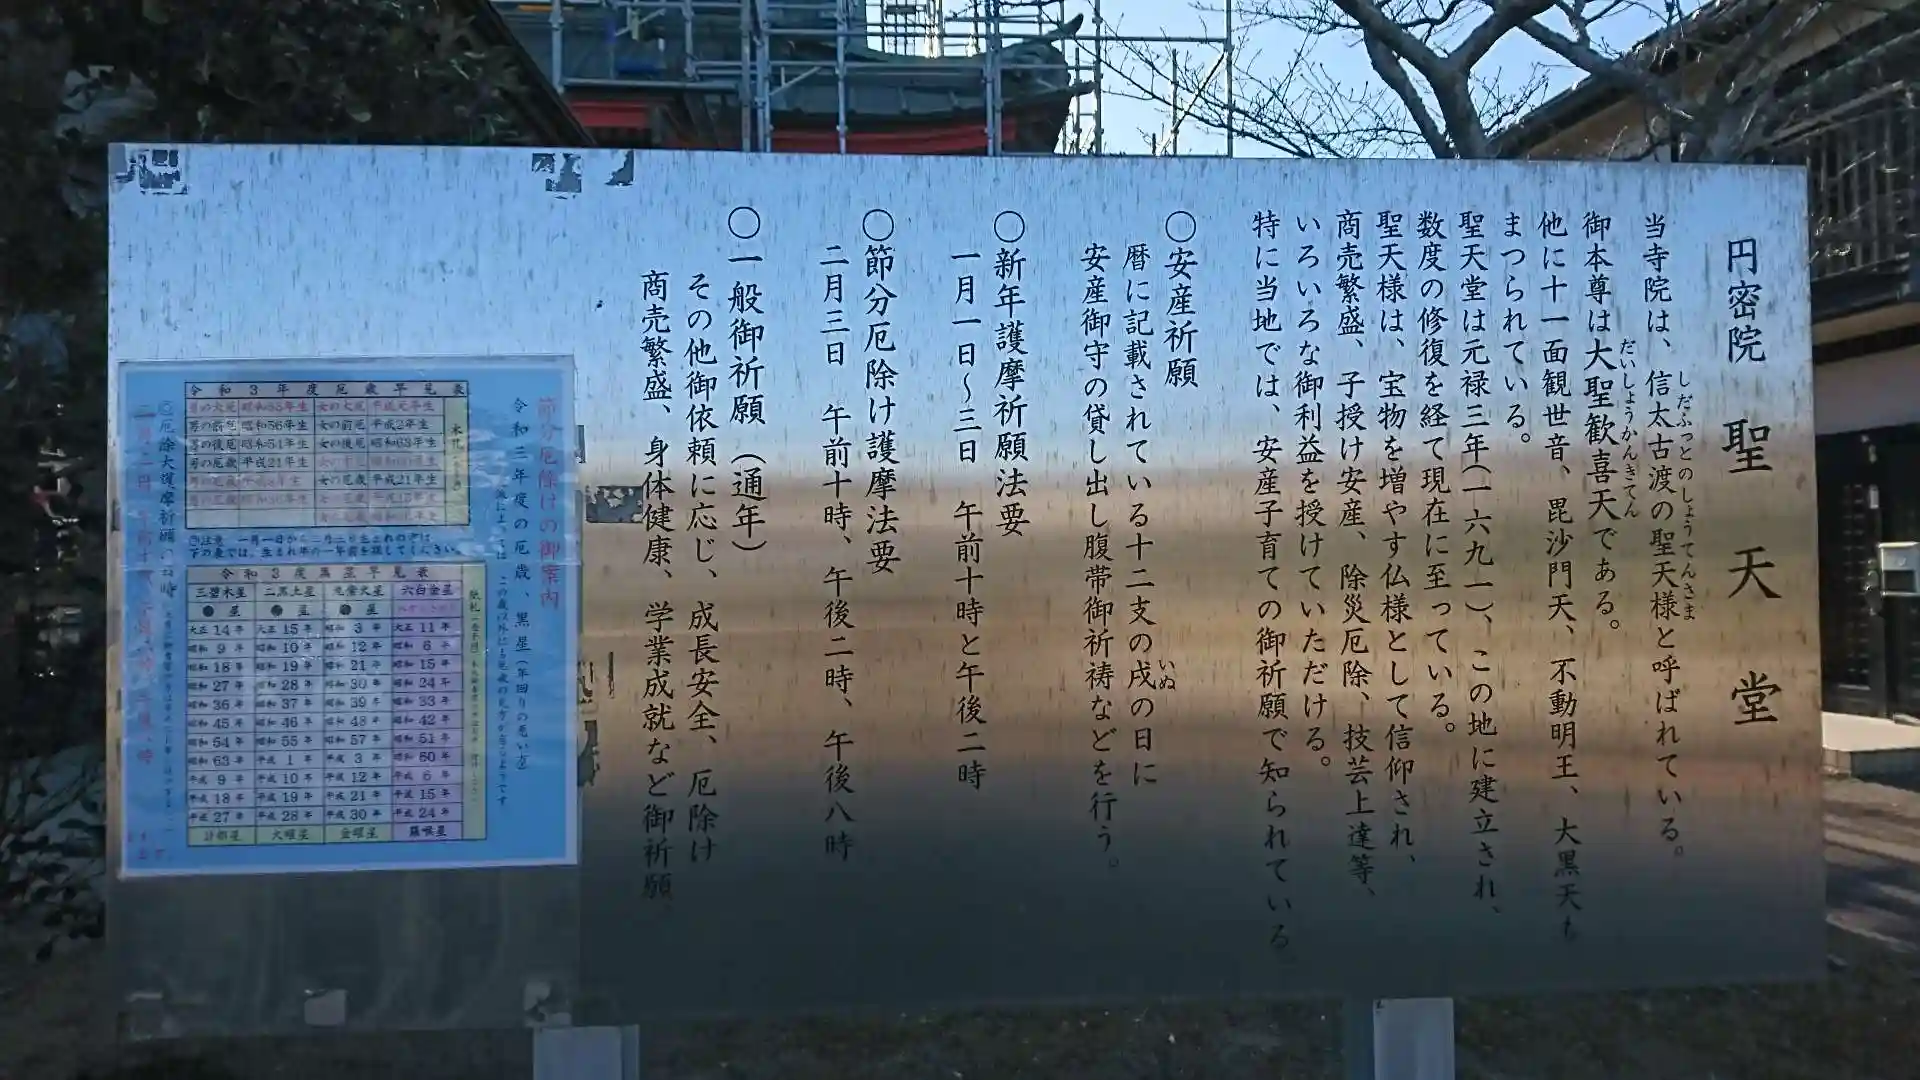 円密院 聖天堂
当寺院は、信太古渡の聖天様と呼ばれている。
しだふっとのしょうてんさま
御本尊は大聖歓喜天である。
だいしょうかんきてん
他に十一面観世音、毘沙門天、不動明王、大黒天も
まつられている。
聖天堂は元禄三年(一六九一)、この地に建立され、
数度の修復を経て現在に至っている。
聖天様は、宝物を増やす仏様として信仰され、
商売繁盛、子授け安産、除災厄除、技芸上達等、
いろいろな御利益を授けていただける。
特に当地では、安産子育ての御祈願で知られている
○安産祈願
暦に記載されている十二支の戌の日に
いぬ
安産御守の貸し出し腹帯御祈祷などを行う。
○新年護摩祈願法要
一月一日～三日 午前十時と午後二時
○節分厄除け護摩法要
二月三日 午前十時、午後二時、午後八時
○一般御祈願(通年)
その他御依頼に応じ、成長安全、厄除け
商売繁盛、身体健康、学業成就など御祈願
節分厄除けの御案内
令和三年度の厄歳、黒星(年回りの悪い方)
令和3年度厄歳早見表
男の大厄 昭和55年生 女の大厄 平成元年生
男の前厄 昭和56年生 女の前厄 平成2年生
男の後厄 昭和54年生 女の後厄 昭和63年生
男の厄歳 平成21年生
女の厄歳 平成21年生
木札
令和3年度黒星早見表
三碧木星 二黒土星 九紫火星 六白金星
●星 ●星 ●星
大正14年 大正15年 昭和3年 大正11年
昭和9年 昭和10年 昭和12年 昭和6年
昭和18年 昭和19年 昭和21年 昭和15年
昭和27年 昭和28年 昭和30年 昭和24年
昭和36年 昭和37年 昭和39年 昭和33年
昭和45年 昭和46年 昭和48年 昭和42年
昭和54年 昭和55年 昭和57年 昭和51年
昭和63年 平成1年 平成3年 昭和60年
平成9年 平成10年 平成12年 平成6年
平成18年 平成19年 平成21年 平成15年
平成27年 平成28年 平成30年 平成24年
計都星 火曜星 金曜星 羅喉星